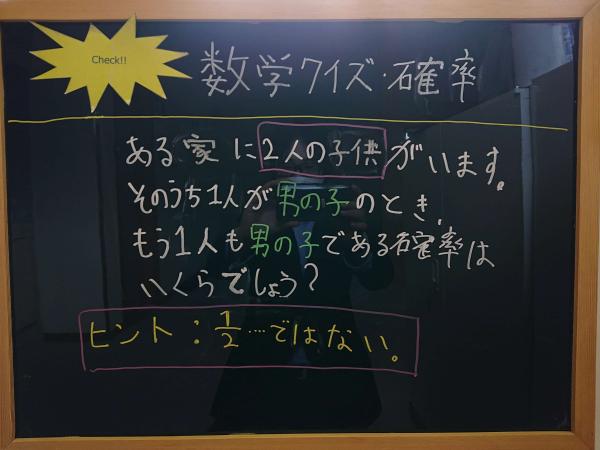 Check!!
数学クイズ・確率
ある家に2人の子供がいます。
そのうち1人が男の子のとき、
もう1人も男の子である確率は
いくらでしょう?
ヒント:1/2…ではない。